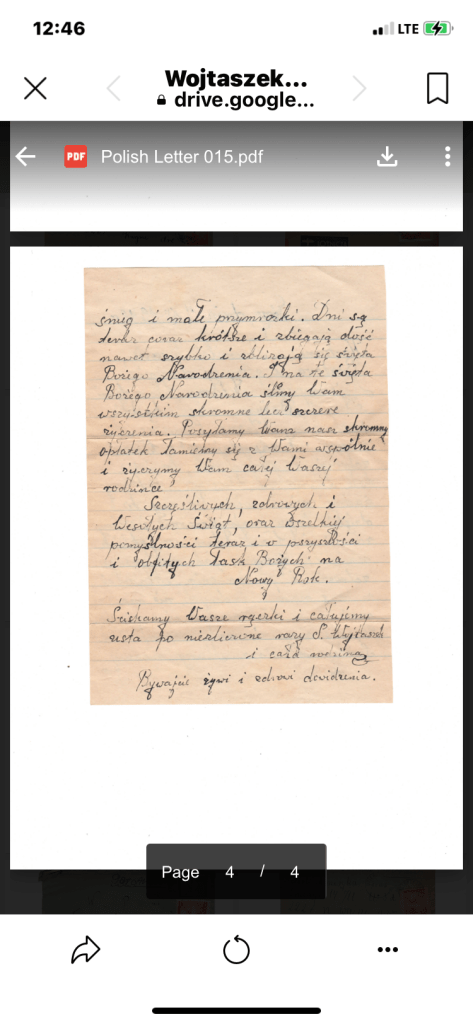 12:46
LTE
Wojtaszek...
drive.google...
PDF Polish Letter 015.pdf
śnieg i małe przymrozki. Dni są
teraz coraz krótsze i zbiegają dość
nawet szybko i zbliżają się święta
Bożego Narodzenia. I na te święta
Bożego Narodzenia ślimy Wam
wszystkim skromne lecz szczere
życzenia. Posyłamy Wam nasz skromny
opłatek łamiemy się z Wami wspólnie
i życzymy Wam całej Waszej
rodzince
Szczęśliwych, zdrowych i
Wesołych Świąt, oraz wszelkiej
pomyślności teraz i w przyszłości
i obfitych łask Bożych na
Nowy Rok.
Ściskamy Wasze rączki i całujemy
usta po niezliczone razy S. Wojtaszek
i cała rodzina
Bywajcie żywi i zdrowi dowidzenia.
Page 4 / 4